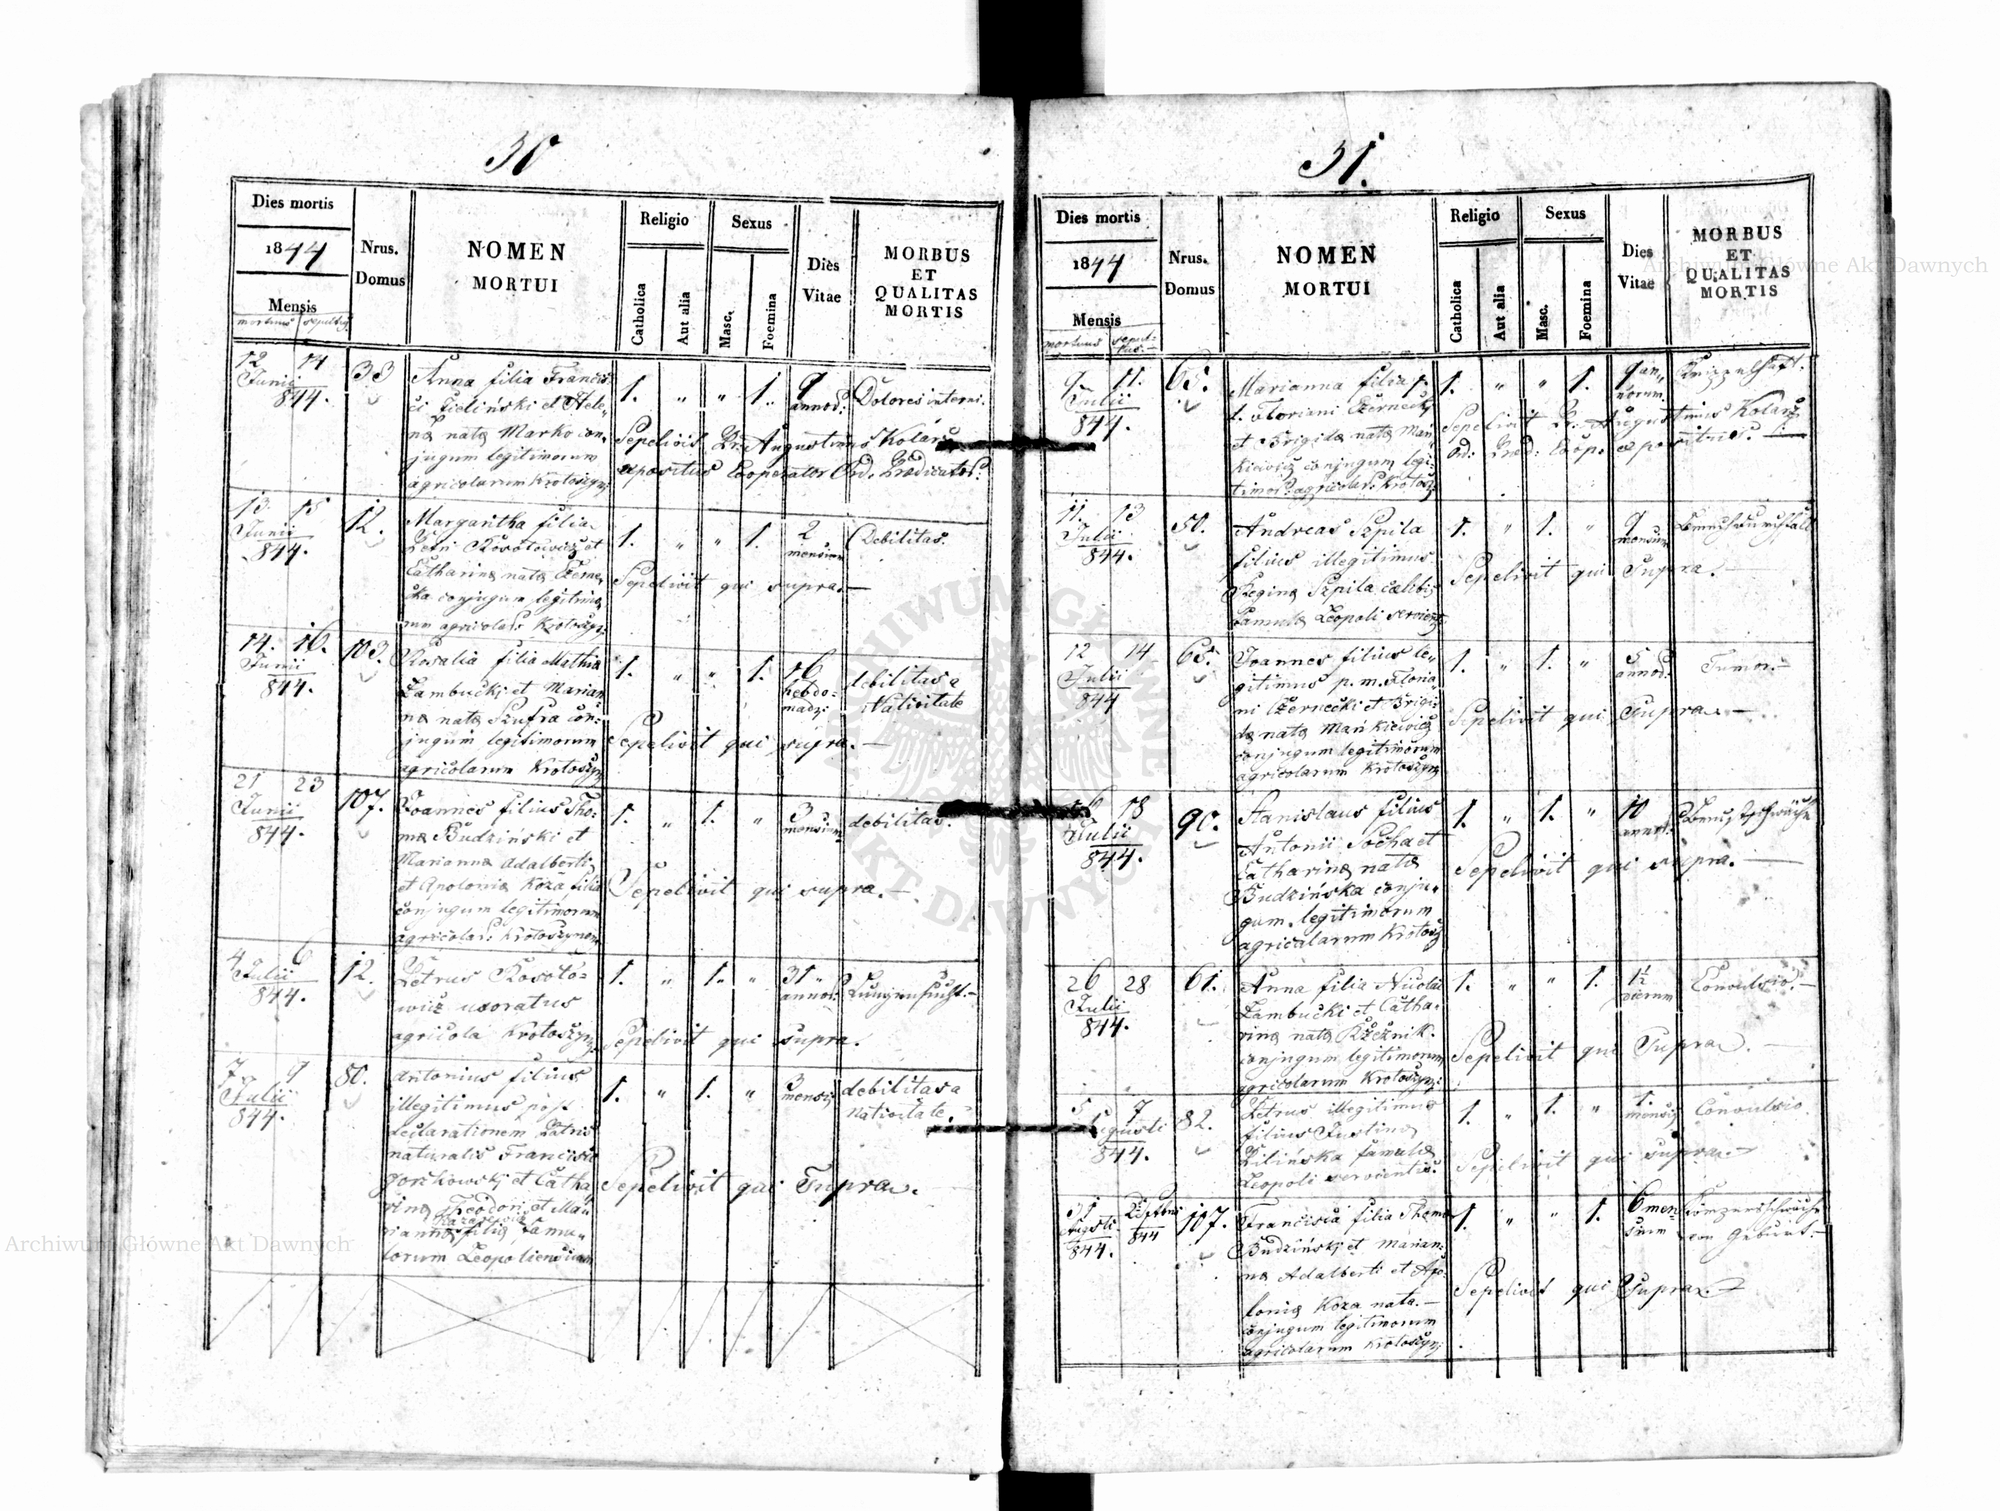 30
Dies mortis
1844
Mensis
mortuus sepultus
Nrus. Domus
NOMEN
MORTUI
Religio
Catholica
Aut alia
Sexus
Masc.
Foemina
Dies
Vitae
MORBUS
ET
QUALITAS
MORTIS
12 14
Junii
844.
33
Anna filia Francis
ci Zieliński et Hele-
na nata Marko con-
jugum legitimorum
agricolarum Krotoszyn
1. „ „ 1.
9
annor:
Dolores interni.
Sepelivit Fr: Augustinus Kolarz
expositus Cooperator Ord. Predicator:
13 15
Junii
844.
12.
Margaritha filia
Petri Kosotowicz et
Catharina nata
ka conjugum legitimo
rum agricolar: Krotoszyn:
1. „ „ 1.
2
mensium
Debilitas.
Sepelivit qui supra.—
14. 16.
Junii
844.
103.
Rosalia filia Mathia
Zambucki et Marian
na nata Szufra con-
jugum legitimorum
agricolarum Krotoszyn
1. „ „ 1.
16
hebdo-
mad:
debilitas a
Nativitate
Sepelivit qui supra.—
21 23
Junii
844.
107.
Joannes filius Tho-
ma Budzinski et
Marianna Adalberti
et Apolonia Koza filia
conjugum legitimorum
agricolar: Krotoszynen
1. „ 1. „
3
mensium
debilitas.
Sepelivit qui supra.—
4 6
Julii
844.
12.
Petrus Kosoto-
wicz uxoratus
agricola Krotoszyn
1. „ 1. „
31
annor:
Lungensucht.—
Sepelivit qui supra.
7 9
Julii
844.
80.
Antonius filius
illegitimus post
declarationem Patris
naturalis Francisci
Gorskowski et Catha
rina Theodori et Mar
ianna filia, famu-
lorum Leopoliensium
1. „ 1. „
3
mensi
debilitas a
nativitate.
Sepelivit qui Supra.
31.
Dies mortis
1844
Mensis
mortuus sepul-
tus.
Nrus. Domus
NOMEN
MORTUI
Religio
Catholica
Aut alia
Sexus
Masc.
Foemina
Dies
Vitae
MORBUS
ET
QUALITAS
MORTIS
9. 11.
Julii
844.
65.
Marianna filia p.
d. Floriani Czernecki
et Brigida nata Mań
kiewicz conjugum legi-
timor: agricolar: Krotosz:
1. „ „ 1.
9 an„
norum.
Sepelivit Fr: Augustinus Kolarz
Ord: Pred: Coop: expositus.
11. 13
Julii
844.
50.
Andreas Szpila
filius illegitimus
Regina Szpila cælibis
famula Leopoli servient
1. „ 1. „
9
mensium
Sepelivit qui Supra.—
12 14
Julii
844
65.
Joannes filius le„
gitimus p. m. Floria„
ni Czernecki et Brigi-
da nata Mańkiewicz
conjugum legitimorum
agricolarum Krotoszyn
1. „ 1. „
5
annor:
Tumor.—
Sepelivit qui Supra.—
16 18
Julii
844.
90.
Stanislaus filius
Antonii Socha et
Catharina nata
Budzińska conju„
gum legitimorum
agricolarum Krotosz
1. „ 1. „
10
Sepelivit qui supra.—
26 28
Julii
844.
61.
Anna filia Nicolai
Zambucki et Catha-
rina nata Rzeźnik.
conjugum legitimorum
agricolarum Krotoszyn:
1. „ „ 1.
1½
dierum
Convulsio.—
Sepelivit qui Supra.—
5 7
Augusti
844.
82.
Petrus illegitimus
filius Justina
Zilińska famula
Leopoli servientis.
1. „ 1. „
1.
mensis
Convulsio.
Sepelivit qui supra.—
31 Septbr
Augusti 844
844.
107.
Francisca filia Thoma
Budziński et Marian-
na Adalberti et Apo-
lonia Koza nata.—
conjugum legitimorum
agricolarum Krotoszyn:
1. „ „ 1.
6 men
sium
von Geburt.—
Sepelivit qui Supra.—
Archiwum Główne Akt Dawnych
Archiwum Główne Akt Dawnych
ARCHIWUM GŁÓWNE AKT DAWNYCH